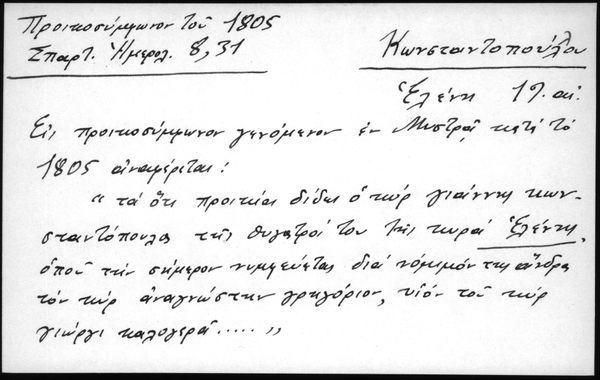 Προικοσύμφωνον τοῦ 1805
Σπαρτ. Ἡμερολ. 8,31
Κωνσταντοπούλου
Ἑλένη 19. αἰ.
Εἰς προικοσύμφωνον γενόμενον ἐν Μυστρᾷ κατά τό
1805 ἀναφέρεται:
" τά ὅσα προικιά δίδει ὁ κύρ γιάννης κων-
σταντόπουλος τῆς θυγατρός του τῆς κυρά Ἑλένης,
ὁποῦ τήν σήμερον νυμφεύεται διά νόμιμόν της ἄνδρα
τόν κύρ ἀναγνώστην γρηγόριον, υἱόν τοῦ κύρ
γιώργι καλογερᾶ..... "